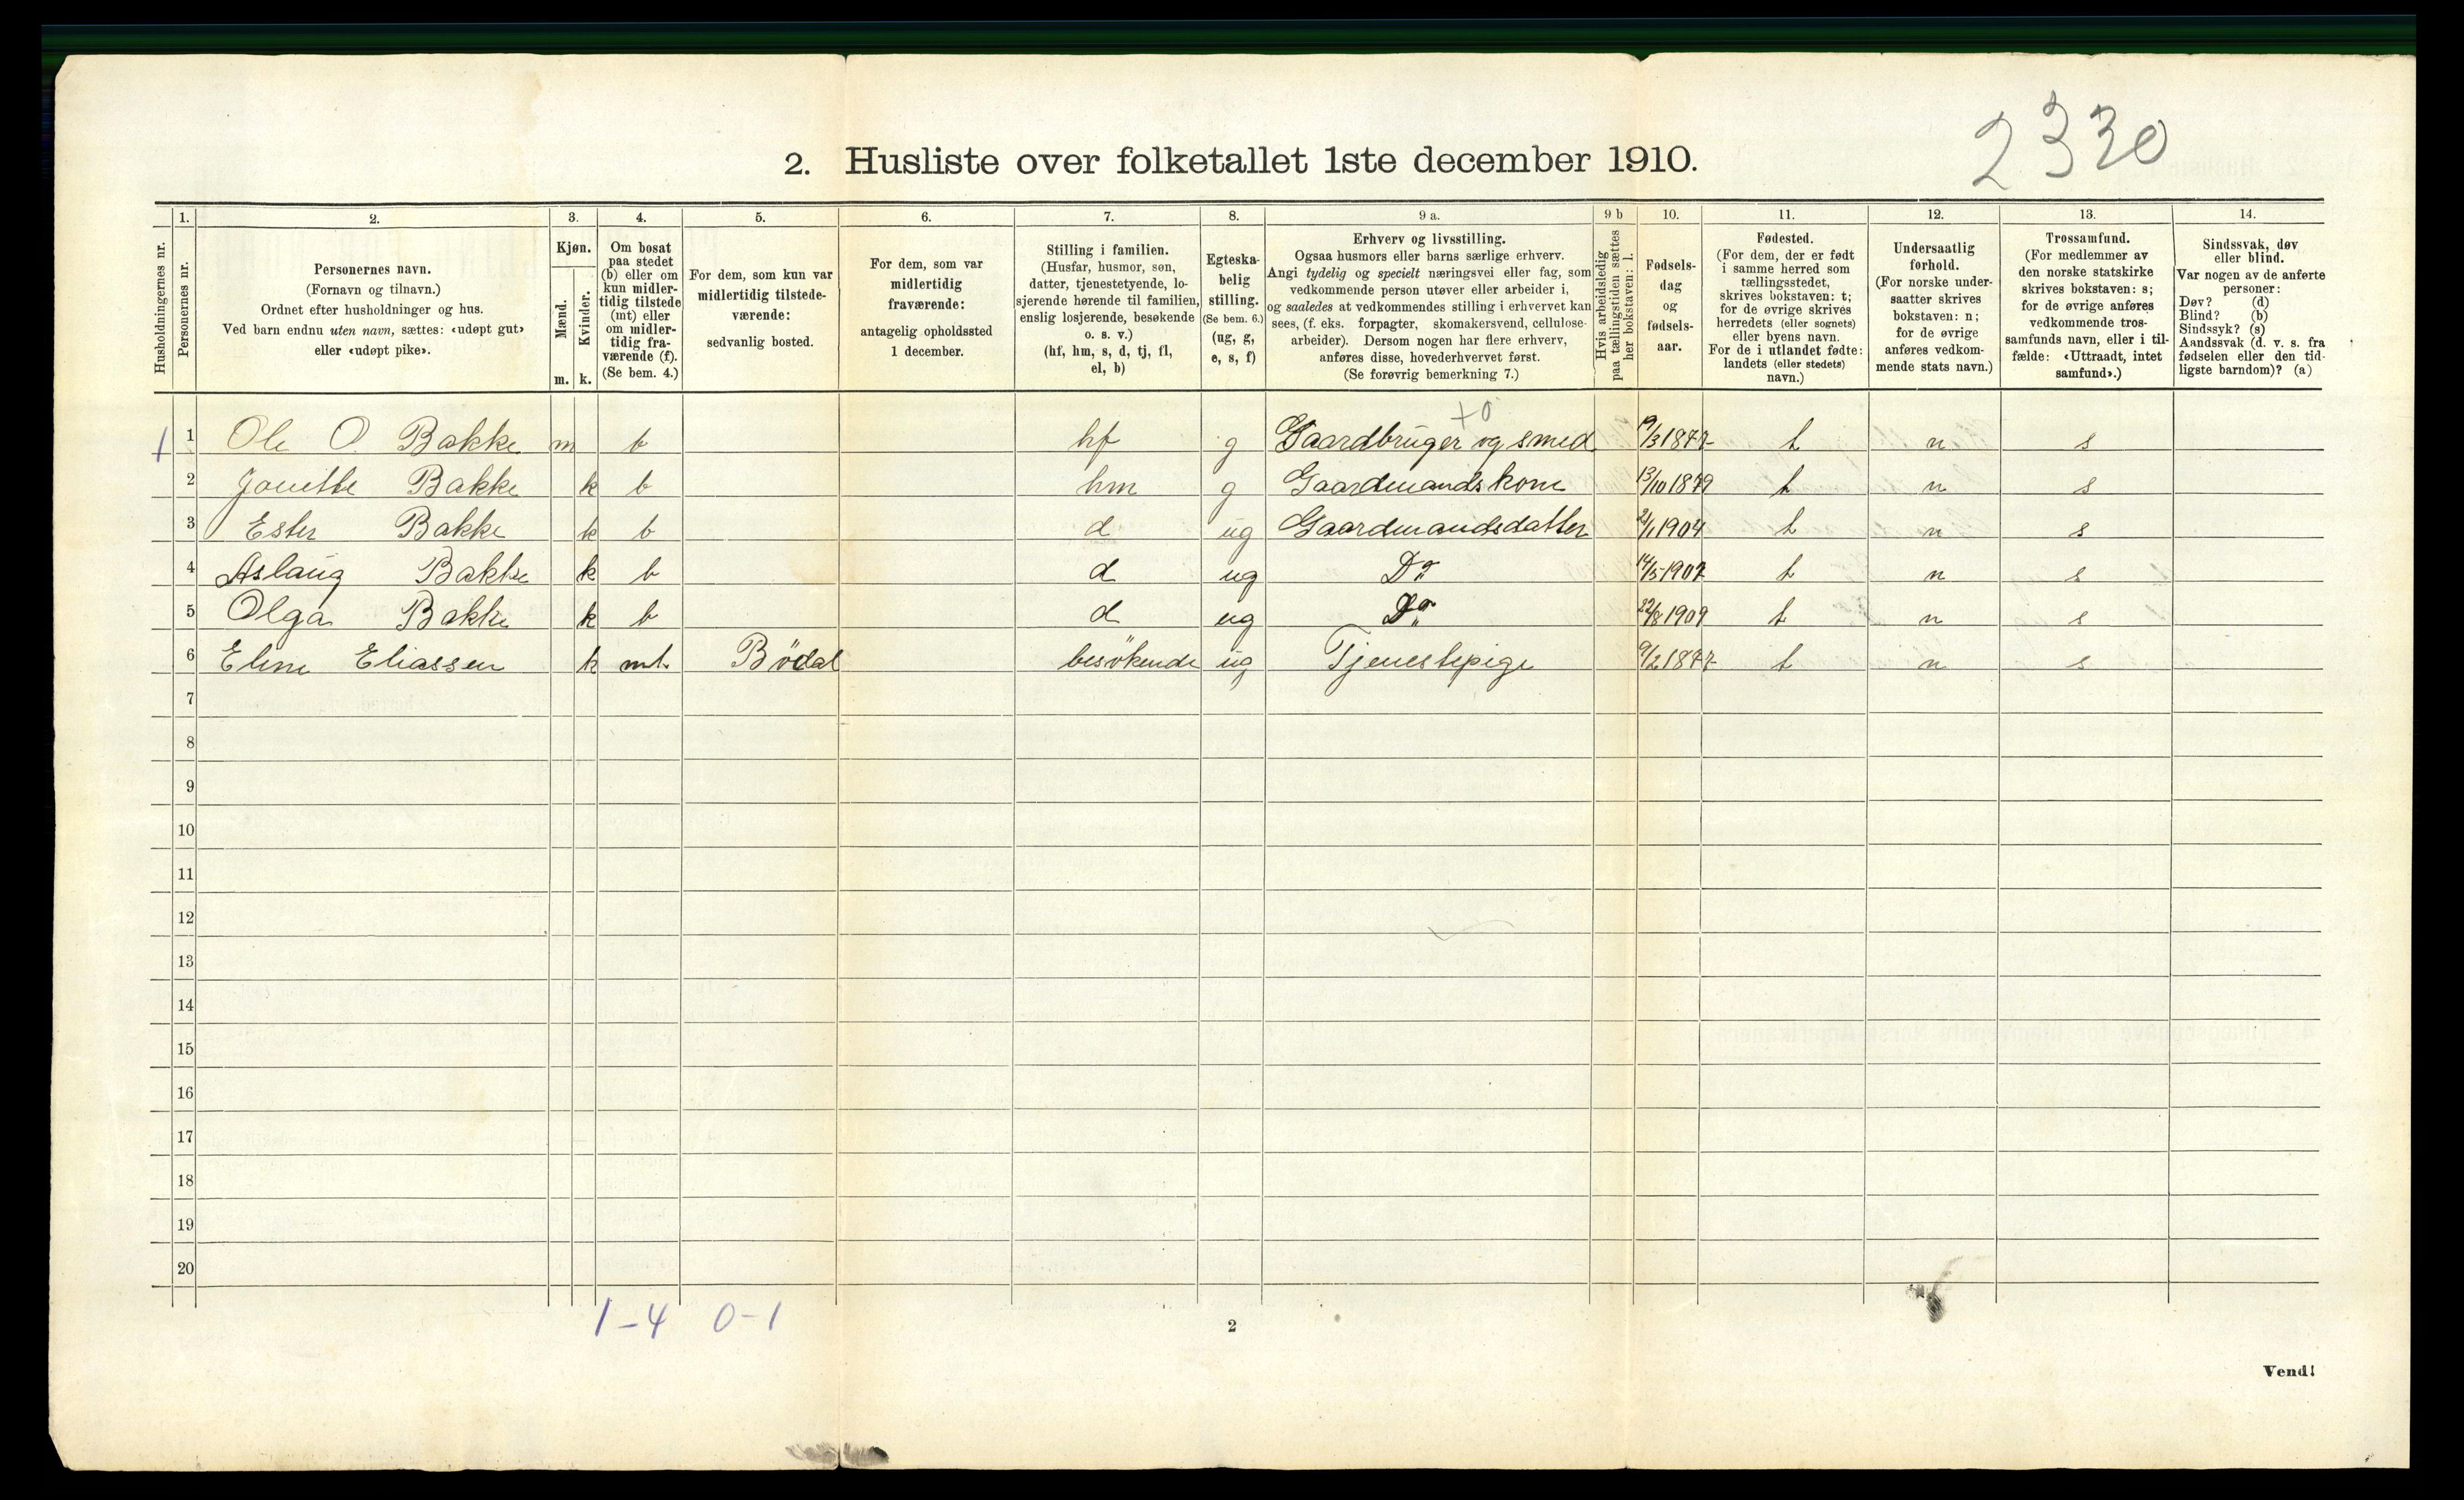 2330
2. Husliste over folketallet 1ste december 1910.
Husholdningernes nr.
1.
Personernes nr.
2.
Personernes navn.
(Fornavn og tilnavn.)
Ordnet efter husholdninger og hus.
Ved barn endnu uten navn, sættes: «udøpt gut»
eller «udøpt pike».
3.
Kjøn.
Mænd.
Kvinder.
m. k.
4.
Om bosat
paa stedet
(b) eller om
kun midler-
tidig tilstede
(mt) eller
om midler-
tidig fra-
værende (f).
(Se bem. 4.)
5.
For dem, som kun var
midlertidig tilstede-
værende:
sedvanlig bosted.
6.
For dem, som var
midlertidig
fraværende:
antagelig opholdssted
1 december.
7.
Stilling i familien.
(Husfar, husmor, søn,
datter, tjenestetyende, lo-
sjerende hørende til familien,
enslig losjerende, besøkende
o. s. v.)
(hf, hm, s, d, tj, fl,
el, b)
8.
Egteska-
belig
stilling.
(Se bem. 6.)
(ug, g,
e, s, f)
9 a.
Erhverv og livsstilling.
Ogsaa husmors eller barns særlige erhverv.
Angi tydelig og specielt næringsvei eller fag, som
vedkommende person utøver eller arbeider i,
og saaledes at vedkommendes stilling i erhvervet kan
sees, (f. eks. forpagter, skomakersvend, cellulose-
arbeider). Dersom nogen har flere erhverv,
anføres disse, hovederhvervet først.
(Se forøvrig bemerkning 7.)
9 b
Hvis arbeidsledig
paa tællingstiden sættes
her bokstaven: l.
10.
Fødsels-
dag
og
fødsels-
aar.
11.
Fødested.
(For dem, der er født
i samme herred som
tællingsstedet,
skrives bokstaven: t;
for de øvrige skrives
herredets (eller sognets)
eller byens navn.
For de i utlandet fødte:
landets (eller stedets)
navn.)
12.
Undersaatlig
forhold.
(For norske under-
saatter skrives
bokstaven: n;
for de øvrige
anføres vedkom-
mende stats navn.)
13.
Trossamfund.
(For medlemmer av
den norske statskirke
skrives bokstaven: s;
for de øvrige anføres
vedkommende tros-
samfunds navn, eller i til-
fælde: «Uttraadt, intet
samfund».)
14.
Sindssvak, døv
eller blind.
Var nogen av de anførte
personer:
Døv? (d)
Blind? (b)
Sindssyk? (s)
Aandssvak (d. v. s. fra
fødselen eller den tid-
ligste barndom)? (a)
+0
1 1 Ole O. Bakke m b hf g Gaardbruger og smed t n s
2 Bakke k b hm g Gaardmandskone 13/10 1879 t n s
3 Ester Bakke k b d ug Gaardmandsdatter 1904 t n s
4 Aslaug Bakke k b d ug Do 14/5 1907 t n s
5 Olga Bakke k b d ug Do 22/8 1909 t n s
6 Eline Eliassen k mt. Bödal besökende ug Tjenestepige t n s
7
8
9
10
11
12
13
14
15
16
17
18
19
20
1-4 0-1
2
Vend!